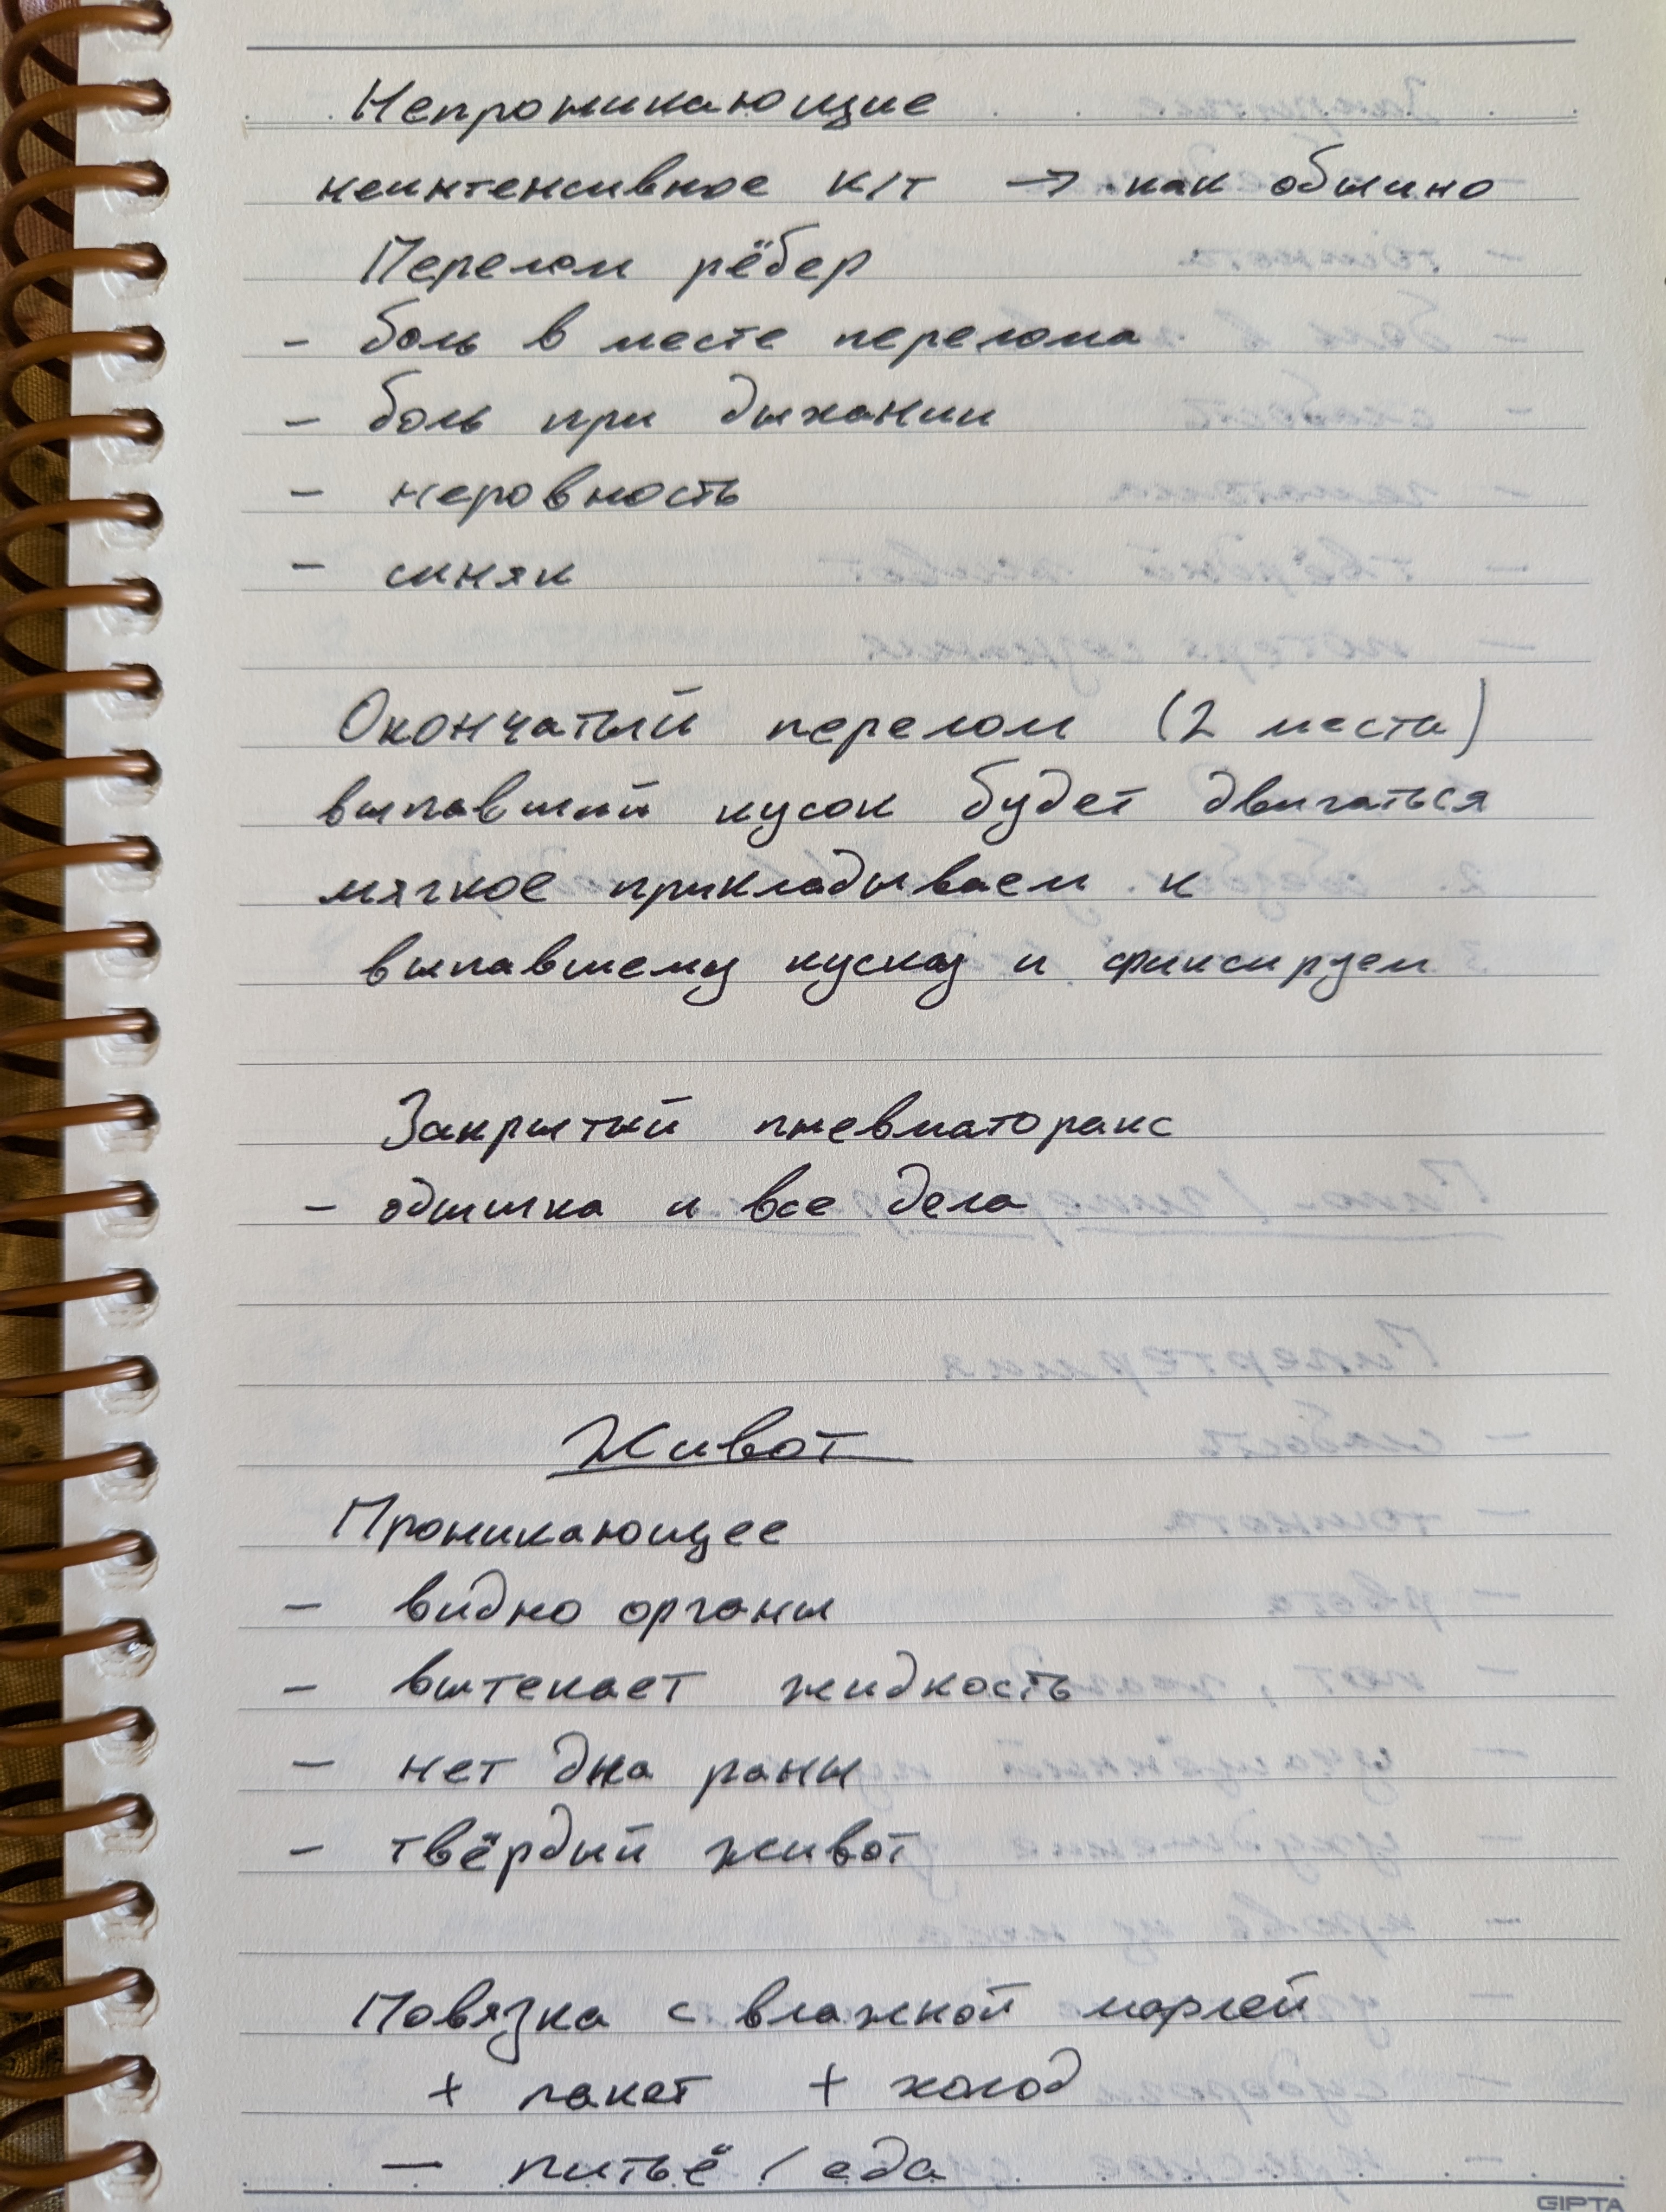 Непроникающие
неинтенсивное к/т → как обычно
Перелом рёбер
- боль в месте перелома
- боль при дыхании
- неровность
- синяк
Окончатый перелом (2 места)
выпавший кусок будет двигаться
мягкое прикладываем к
выпавшему куску и фиксируем
Закрытый пневматоракс
- одышка и все дела
Живот
Проникающее
- видно органы
- вытекает жидкость
- нет дна раны
- твёрдый живот
Повязка с влажной марлей
+ пакет + холод
- питьё / еда
GIPTA